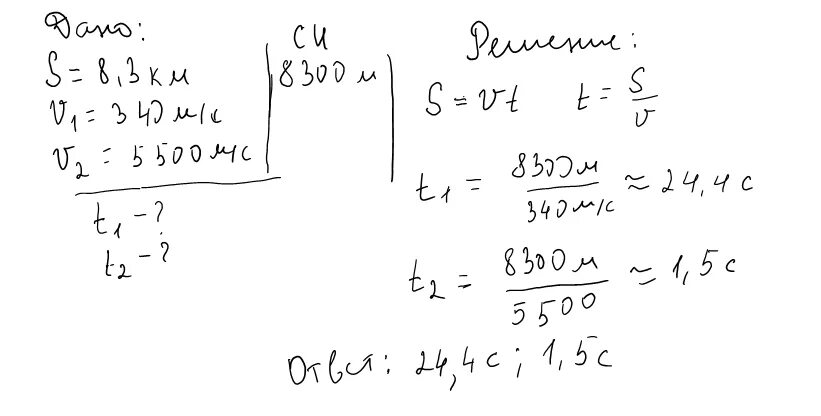 Дано:
S = 8,3 км
V₁ = 340 м/с
V₂ = 5500 м/с
t₁ - ?
t₂ - ?
СИ
8300 м
Решение:
S = Vt    t = S/V
t₁ = 8300 м / 340 м/с ≈ 24,4 с
t₂ = 8300 м / 5500 ≈ 1,5 с
Ответ: 24,4 с ; 1,5 с